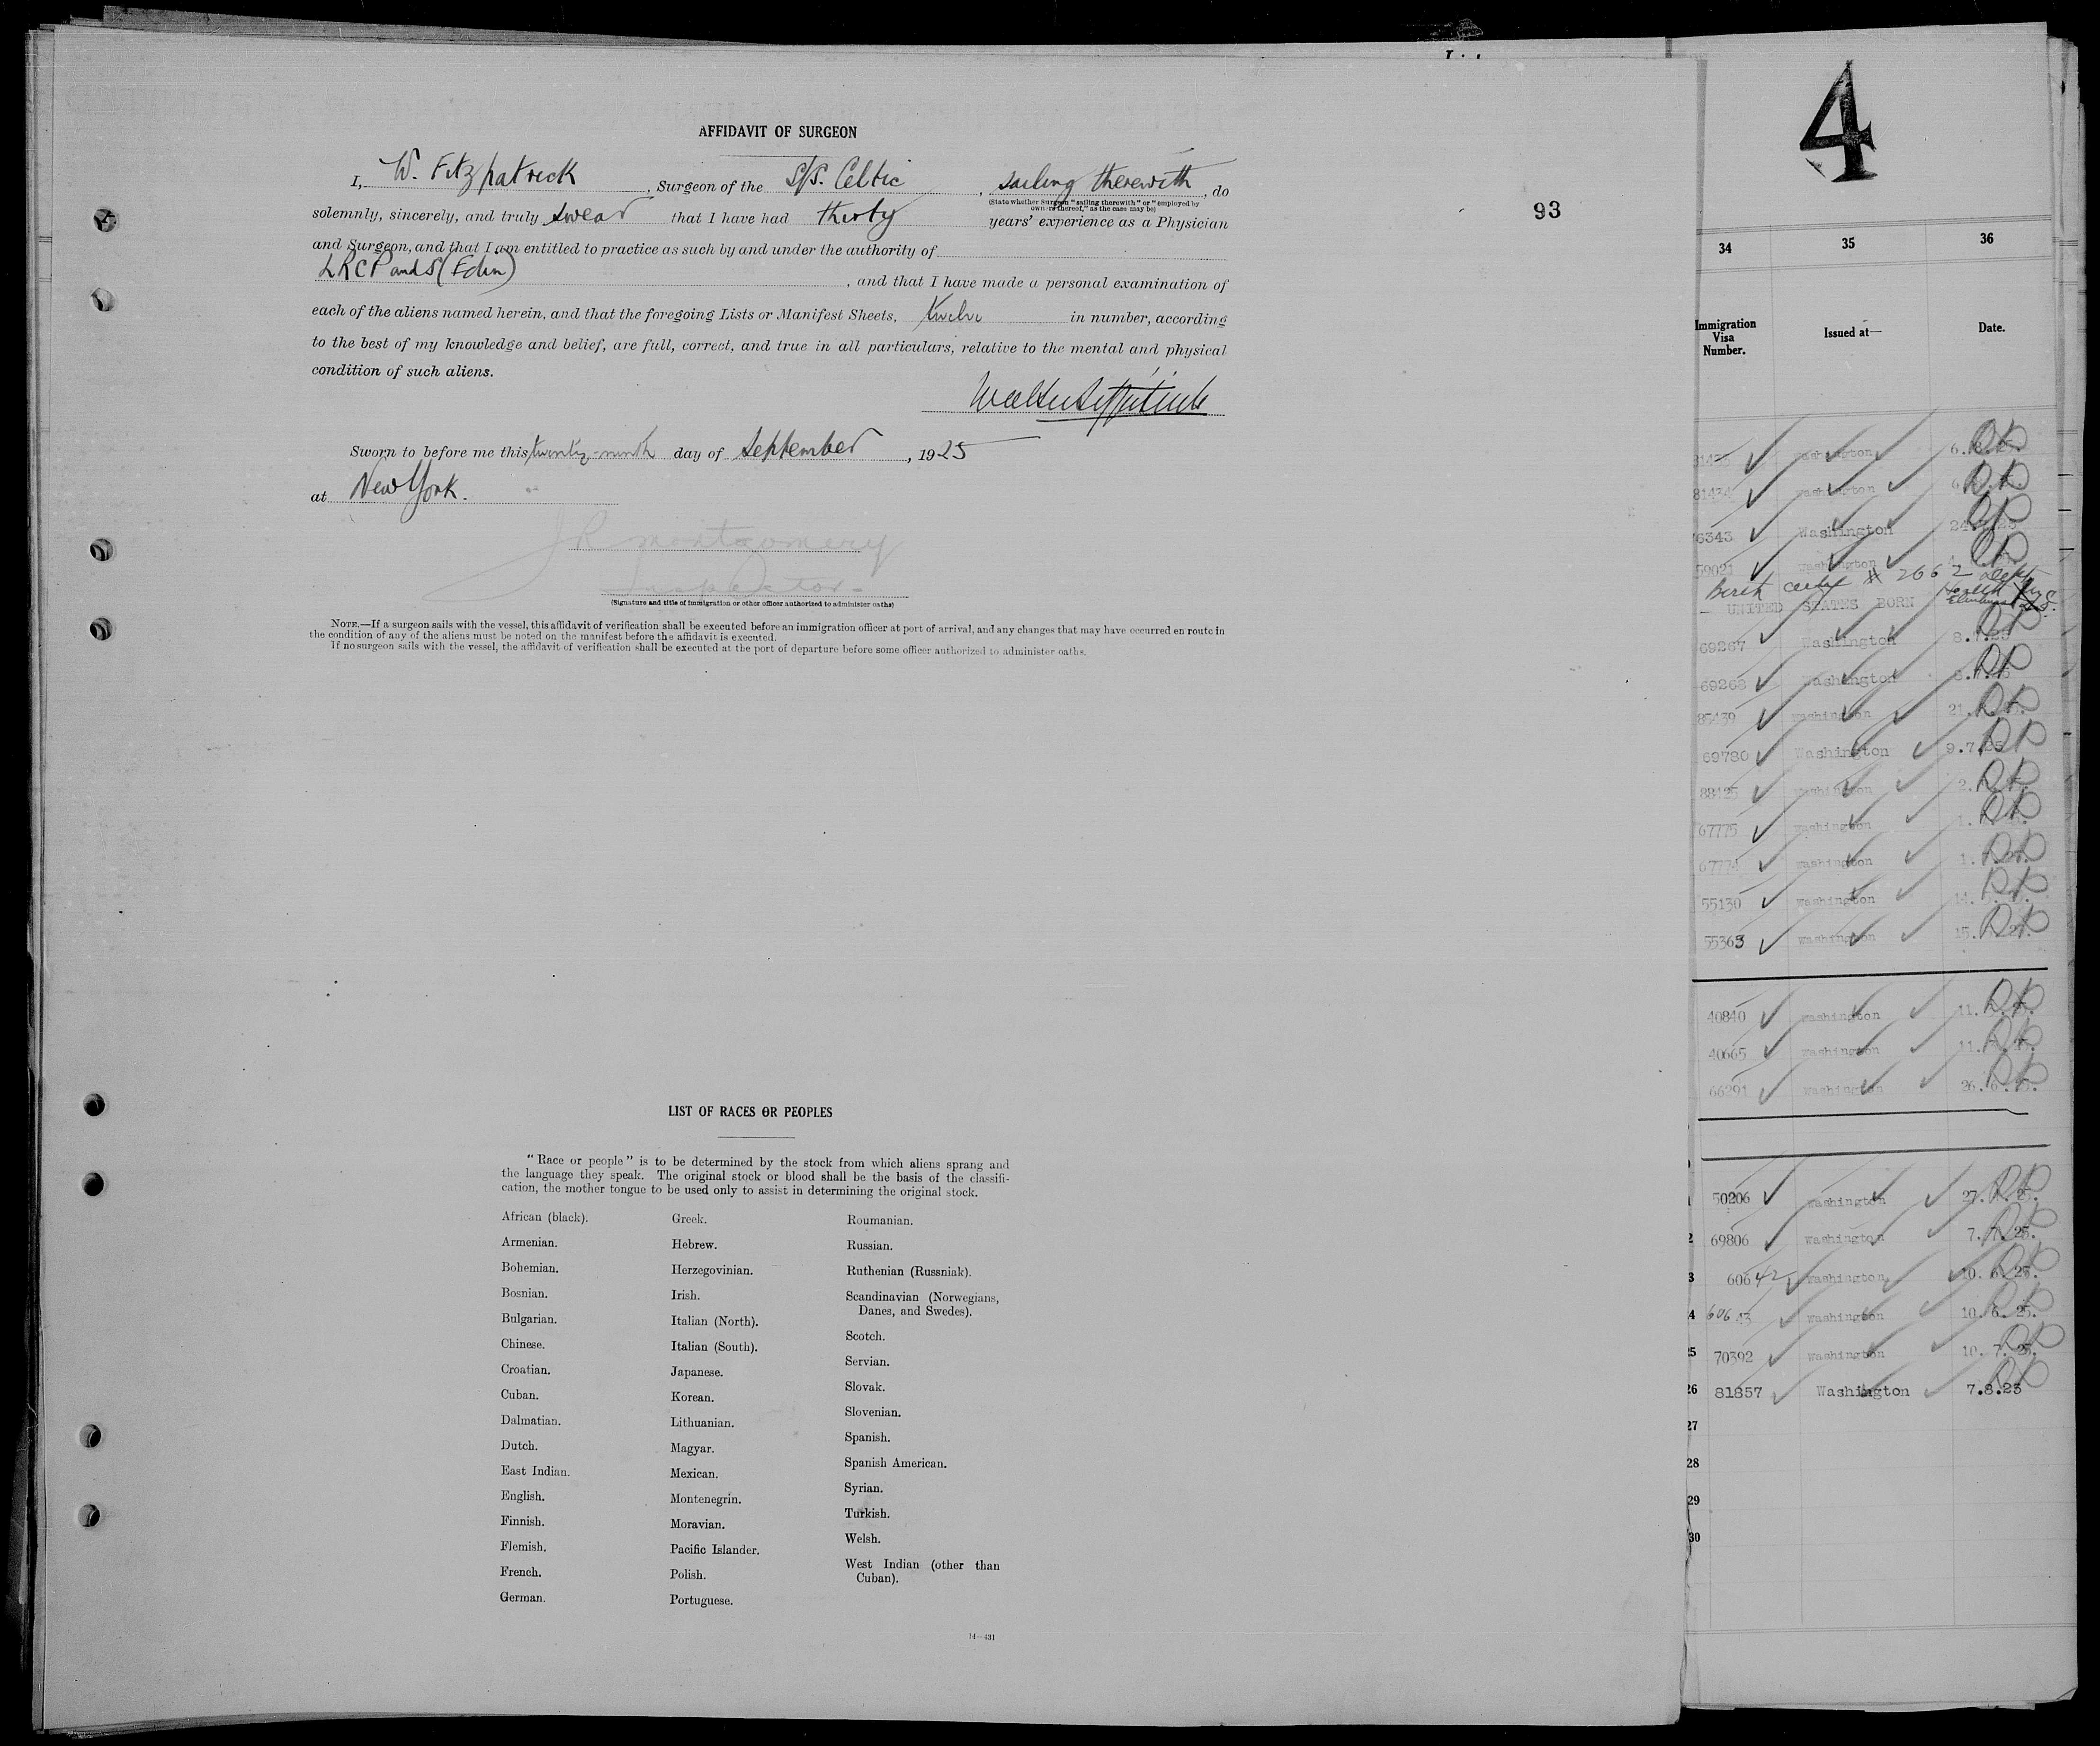 AFFIDAVIT OF SURGEON
I, W. Fitzpatrick, Surgeon of the S/S. Celtic, sailing therewith, do
(State whether Surgeon "sailing therewith" or "employed by
owners thereof," as the case may be)
solemnly, sincerely, and truly swear that I have had thirty years' experience as a Physician
and Surgeon, and that I am entitled to practice as such by and under the authority of
LRCP and S (Edin), and that I have made a personal examination of
each of the aliens named herein, and that the foregoing Lists or Manifest Sheets, twelve in number, according
to the best of my knowledge and belief, are full, correct, and true in all particulars, relative to the mental and physical
condition of such aliens.
Sworn to before me this twenty-ninth day of September, 1925
at New York.
J R Montgomery
Inspector
(Signature and title of immigration or other officer authorized to administer oaths)
NOTE.—If a surgeon sails with the vessel, this affidavit of verification shall be executed before an immigration officer at port of arrival, and any changes that may have occurred en route in
the condition of any of the aliens must be noted on the manifest before the affidavit is executed.
If no surgeon sails with the vessel, the affidavit of verification shall be executed at the port of departure before some officer authorized to administer oaths.
93
LIST OF RACES OR PEOPLES
"Race or people" is to be determined by the stock from which aliens sprang and
the language they speak. The original stock or blood shall be the basis of the classifi-
cation, the mother tongue to be used only to assist in determining the original stock.
African (black).
Armenian.
Bohemian.
Bosnian.
Bulgarian.
Chinese.
Croatian.
Cuban.
Dalmatian.
Dutch.
East Indian.
English.
Finnish.
Flemish.
French.
German.
Greek.
Hebrew.
Herzegovinian.
Irish.
Italian (North).
Italian (South).
Japanese.
Korean.
Lithuanian.
Magyar.
Mexican.
Montenegrin.
Moravian.
Pacific Islander.
Polish.
Portuguese.
Roumanian.
Russian.
Ruthenian (Russniak).
Scandinavian (Norwegians,
Danes, and Swedes).
Scotch.
Servian.
Slovak.
Slovenian.
Spanish.
Spanish American.
Syrian.
Turkish.
Welsh.
West Indian (other than
Cuban).
14—431
4
34 35 36
Immigration
Visa
Number.
Issued at—
Date.
Washington
Washington
6343 Washington
Washington
Birth # 2662
UNITED STATES BORN
69267 Washington 8.7.25
69268 Washington
85439 Washington 21.
69780 Washington 9.7.25
88425 Washington 2.
67775 Washington
67774 Washington 1.
55130 Washington 14.
55363 Washington 15.
40840 Washington 11.
40665 Washington 11.
66291 Washington 26.6.25.
50206 Washington 27.
69806 Washington 7.7.25.
3 60642 Washington 10.6.25.
4 60643 Washington 10.6.25.
5 70392 Washington 10.7.25.
26 81857 Washington 7.8.25
27
28
29
30